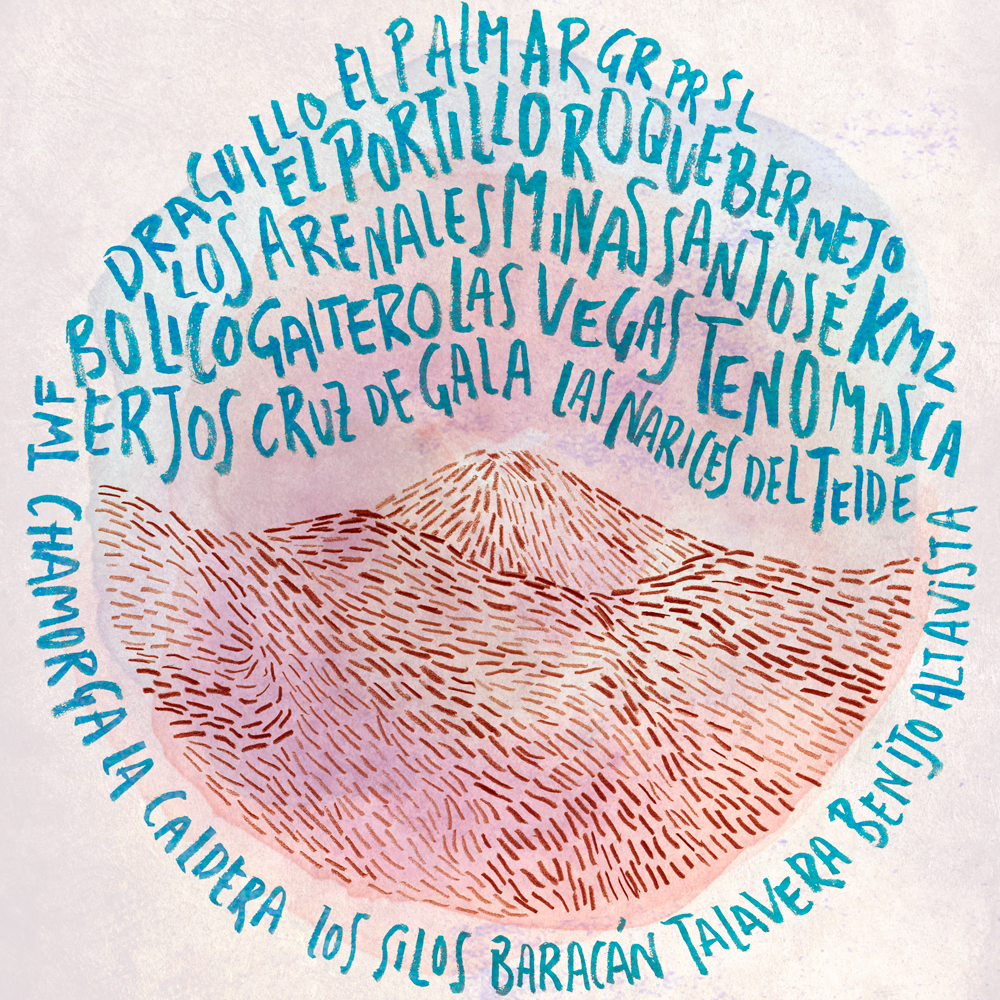 DRAGUILLO EL PALMAR GR PR SL
EL PORTILLO ROQUE BERMEJO
LOS ARENALES MINAS SAN JOSÉ KM2
BOLICO GAITERO LAS VEGAS TENO MASCA
ERJOS CRUZ DE GALA LAS NARICES DEL TEIDE
TWF CHAMORGA LA CALDERA LOS SILOS BARACÁN TALAVERA BENIJO ALTAVISTA